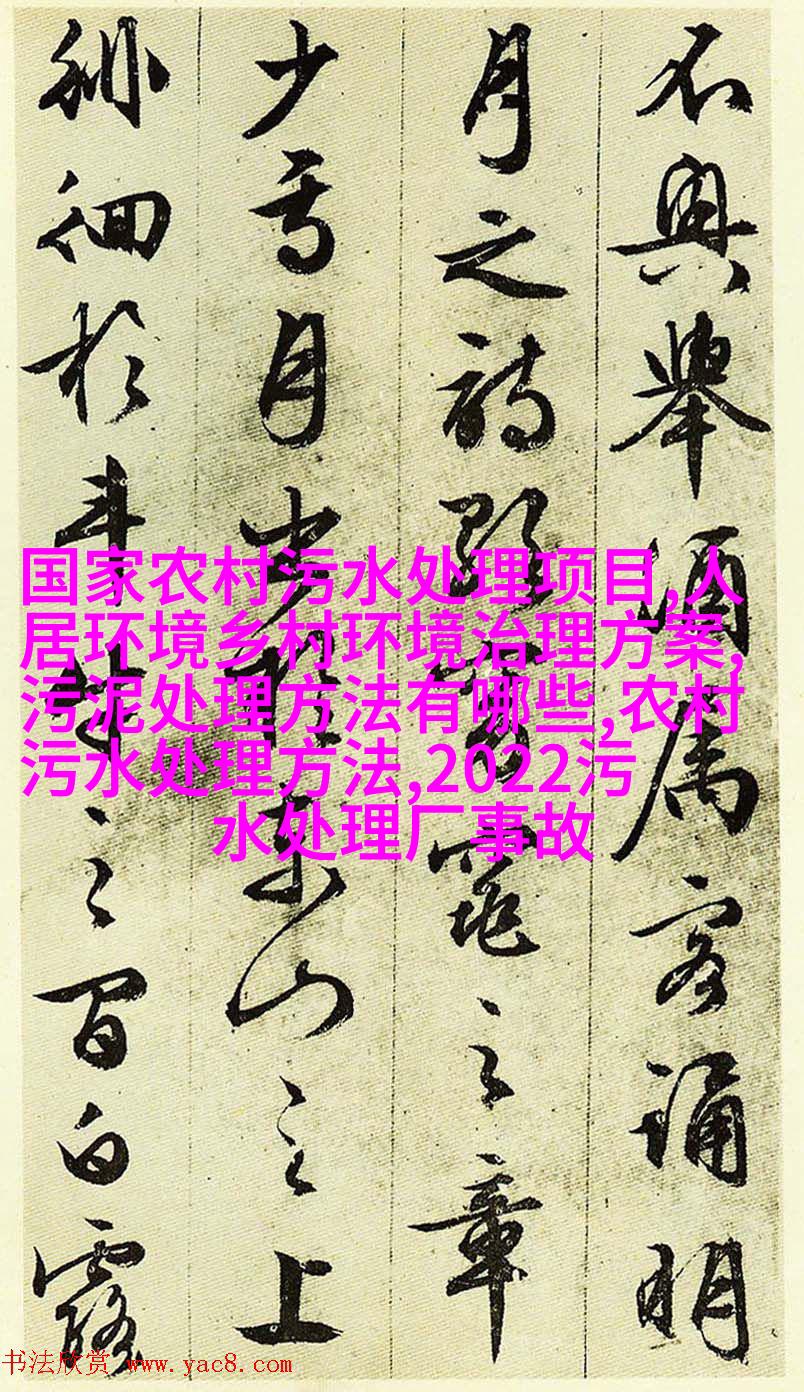 不興舉酒属客誦明
月之詩歌窈窕之章
少焉月出於東山之上
徘徊於斗牛之間白露
国家农村污水处理项目,人
居环境乡村环境治理方案,
污泥处理方法有哪些,农村
污水处理方法,2022污
水处理厂事故
书法欣赏 www.yac8.com